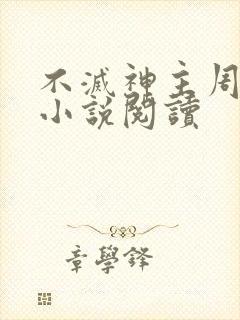 不滅神主周
小說閱讀
章學鋒